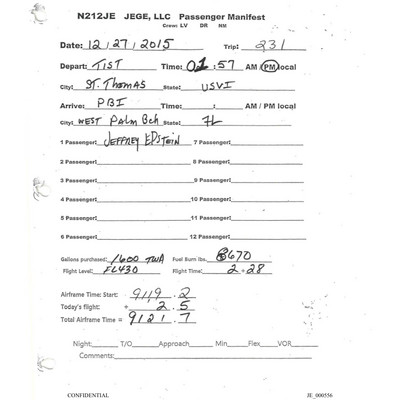 N212JE JEGE, LLC Passenger Manifest
Crew: LV DR NM
Date: 12/27/2015 Trip: 231
Depart: TIST Time: 01:57 AM / PM local
City: ST. Thomas State: USVI
Arrive: PBI Time: AM / PM local
City: WEST Palm Bch State: FL
1 Passenger: JEFFREY EPSTEIN 7 Passenger:
2 Passenger: 8 Passenger:
3 Passenger: 9 Passenger:
4 Passenger: 10 Passenger:
5 Passenger: 11 Passenger:
6 Passenger: 12 Passenger:
Gallons purchased: 1600 TWA Fuel Burn lbs. 8670
Flight Level: FL430 Flight Time: 2-28
Airframe Time: Start: 9119.2
Today's flight: + 2.5
Total Airframe Time = 9121.7
Night: T/O Approach Min Flex VOR
Comments:
CONFIDENTIAL JE_000556